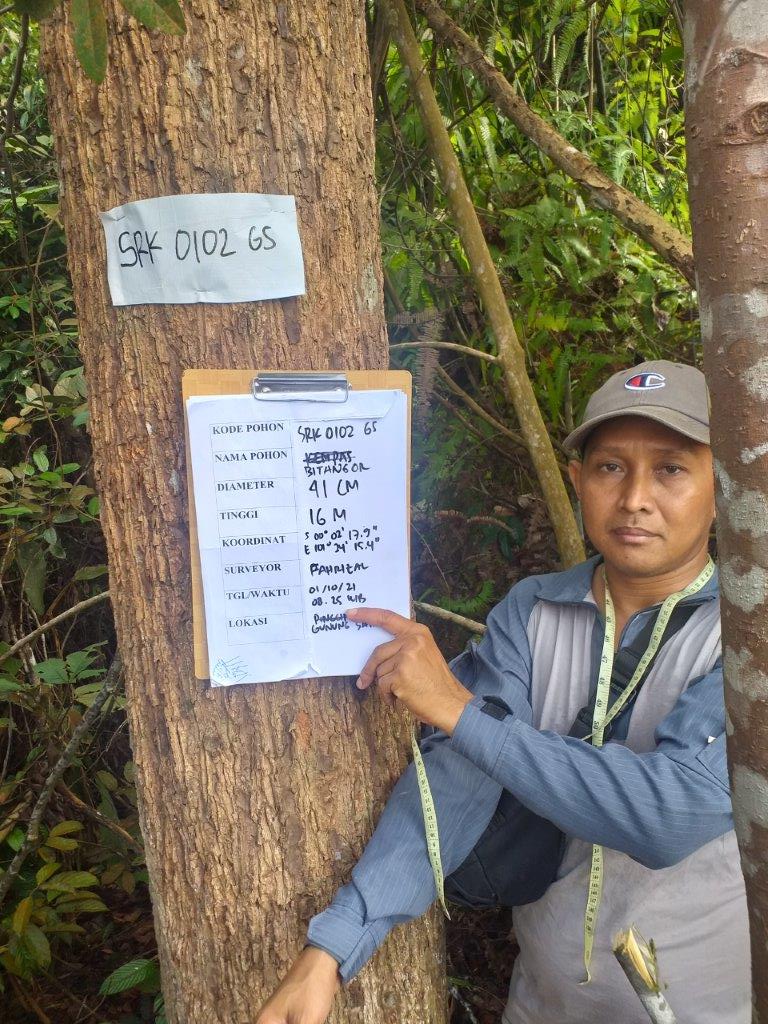 SRK 0102 GS
KODE POHON SRK 0102 GS
NAMA POHON KEMPAS
BITANGOR
DIAMETER 41 CM
TINGGI 16 M
KOORDINAT S 00° 02' 17.9"
E 101° 24' 15.4"
SURVEYOR FAHRIZAL
TGL/WAKTU 01/10/21
08.25 WIB
LOKASI
GUNUNG